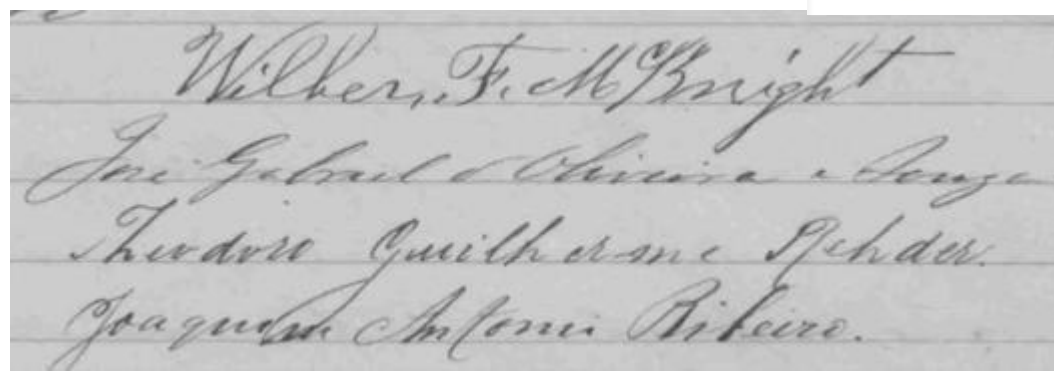 Wilber F. McKnight
José Gabriel d'Oliveira e Souza
Theodoro Guilherme Rehder.
Joaquim Antonio Ribeiro.